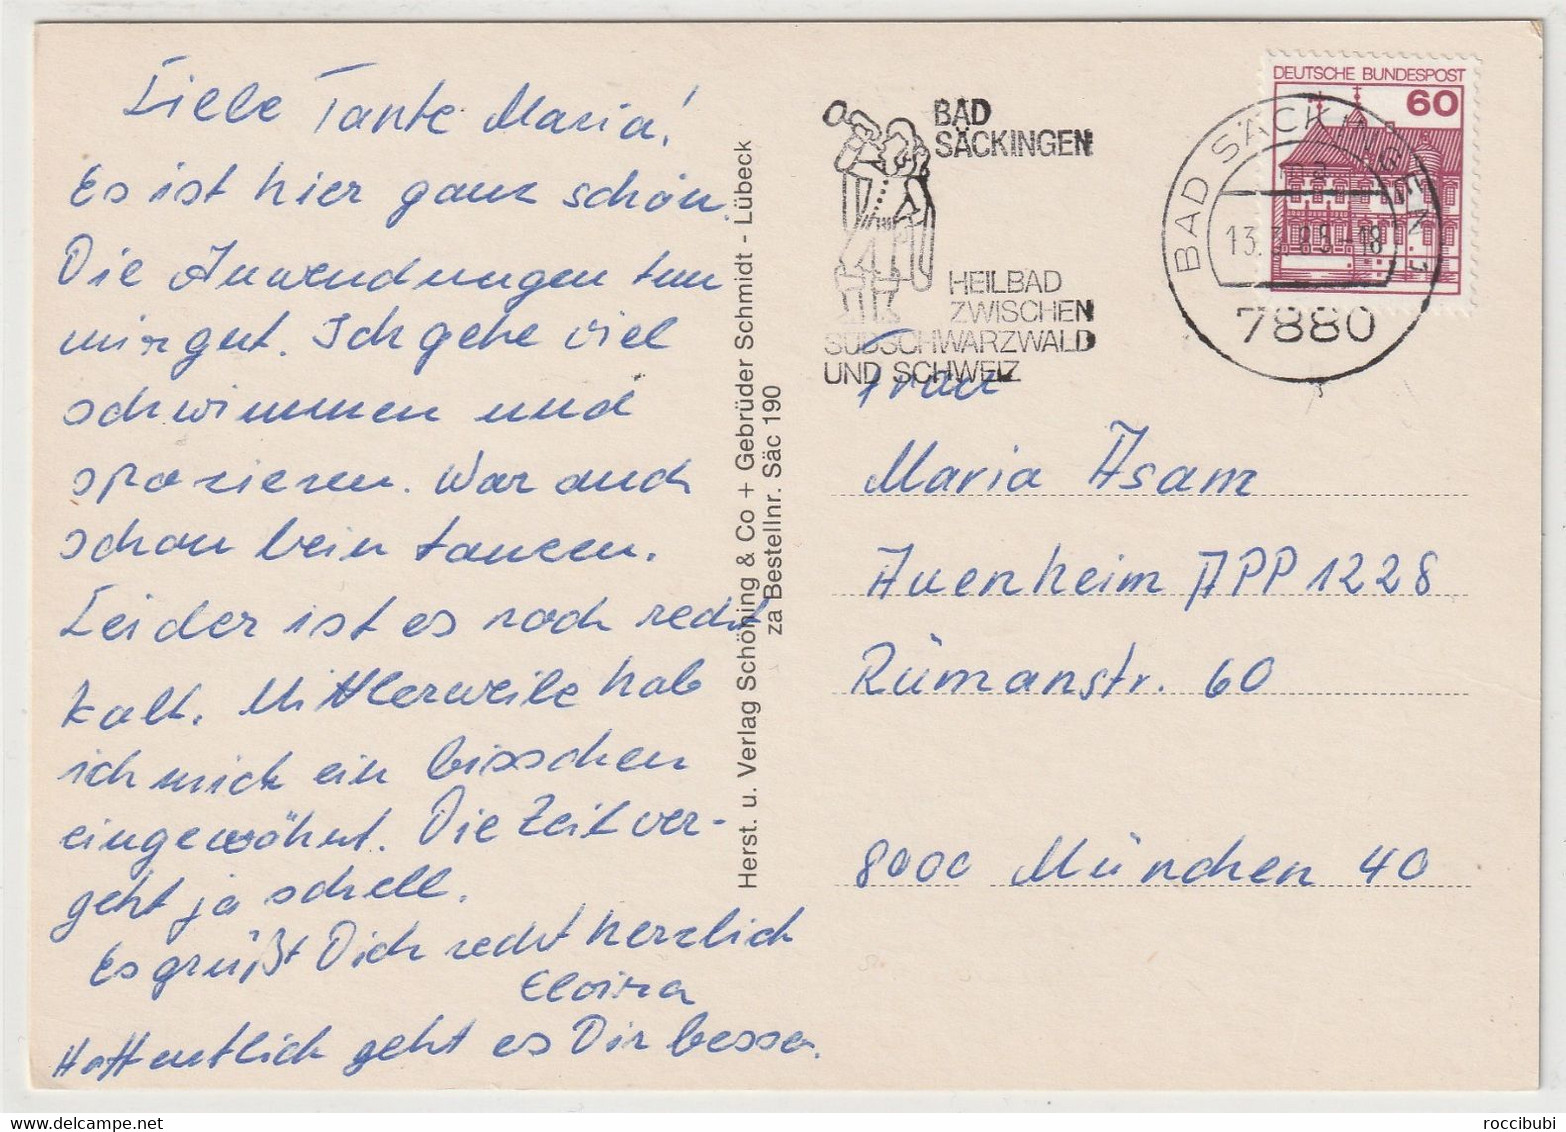 Liebe Tante Maria!
Es ist hier ganz schön.
Die Anwendungen tun
mir gut. Ich gehe viel
schwimmen und
spazieren. War auch
schon bein tanzen.
Leider ist es noch recht
kalt. Mittlerweile hab
ich mich ein bisschen
eingewöhnt. Die Zeit ver-
geht ja schell.
Es grüßt Dich recht herzlich
Hoffentlich geht es Dir besser.
Herst. u. Verlag Schöning & Co + Gebrüder Schmidt - Lübeck
za Bestellnr. Säc 190
BAD
SÄCKINGEN
HEILBAD
ZWISCHEN
SÜDSCHWARZWALD
UND SCHWEIZ
DEUTSCHE BUNDESPOST
60
BAD SÄCKINGEN 1
a
-18
7880
Frau
Maria Asam
Auenheim APP 1228
Rümanstr. 60
8000 München 40
roccibubi